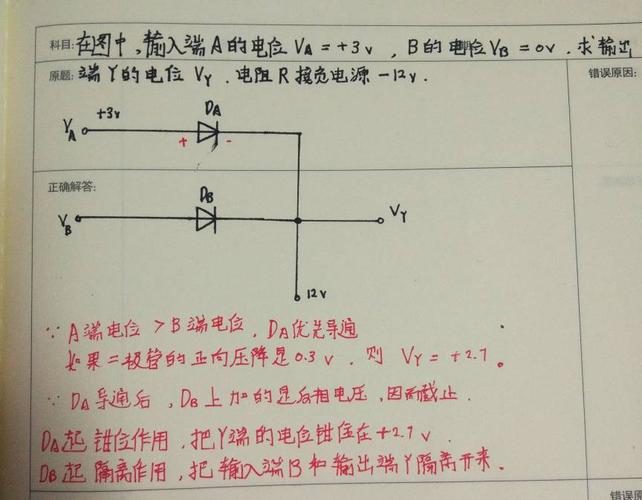 科目: 在图中,输入端A的电位 VA=+3v , B的电位VB=0v. 求输出
原题: 端Y的电位 VY. 电阻R接负电源 -12v.
错误原因:
+3v
DA
VA
+ -
正确解答:
DB
VB
VY
12v
∵ A端电位 > B端电位, DA优先导通
如果二极管的正向压降是0.3v, 则 VY=+2.7。
∵ DA导通后, DB上加的是反相电压, 因而截止.
DA起 钳位作用, 把Y端的电位钳位在+2.7v.
DB起 隔离作用, 把输入端B和输出端Y隔离开来.
错误原